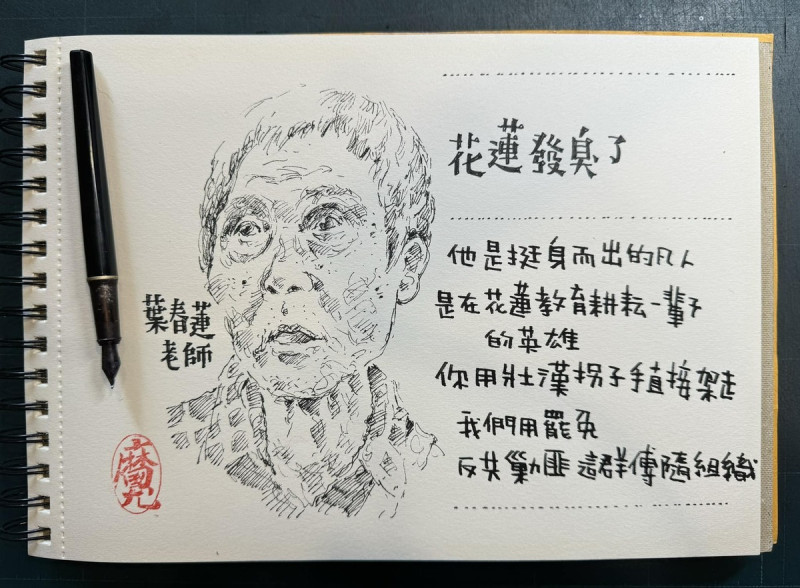 花蓮發臭了
他是挺身而出的凡人
是在花蓮教育耕耘一輩子
的英雄
你用壯漢拐子手直接架走
我們用罷免
反共勦匪 這群傅隨組織
葉春蓮
老師